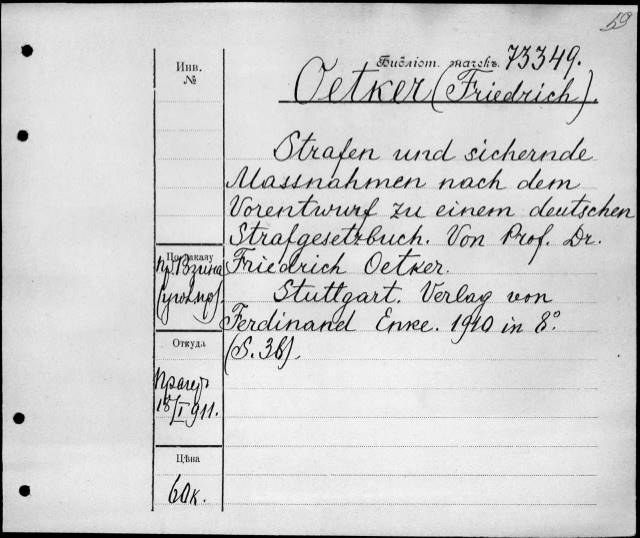 59
Инв.
№
Библіот. значекъ. 73349.
Oetker (Friedrich).
Strafen und sichernde
Massnahmen nach dem
Vorentwurf zu einem deutschen
Strafgesetzbuch. Von Prof. Dr.
Friedrich Oetker.
Stuttgart. Verlag von
Ferdinand Enke. 1910 in 8°.
(S. 36).
По заказу
пр.
Откуда
18/I 911.
Цѣна
60 к.